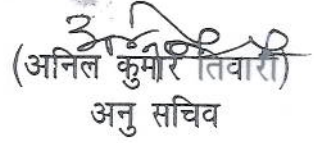 (अनिल कुमार तिवारी)
अनु सचिव